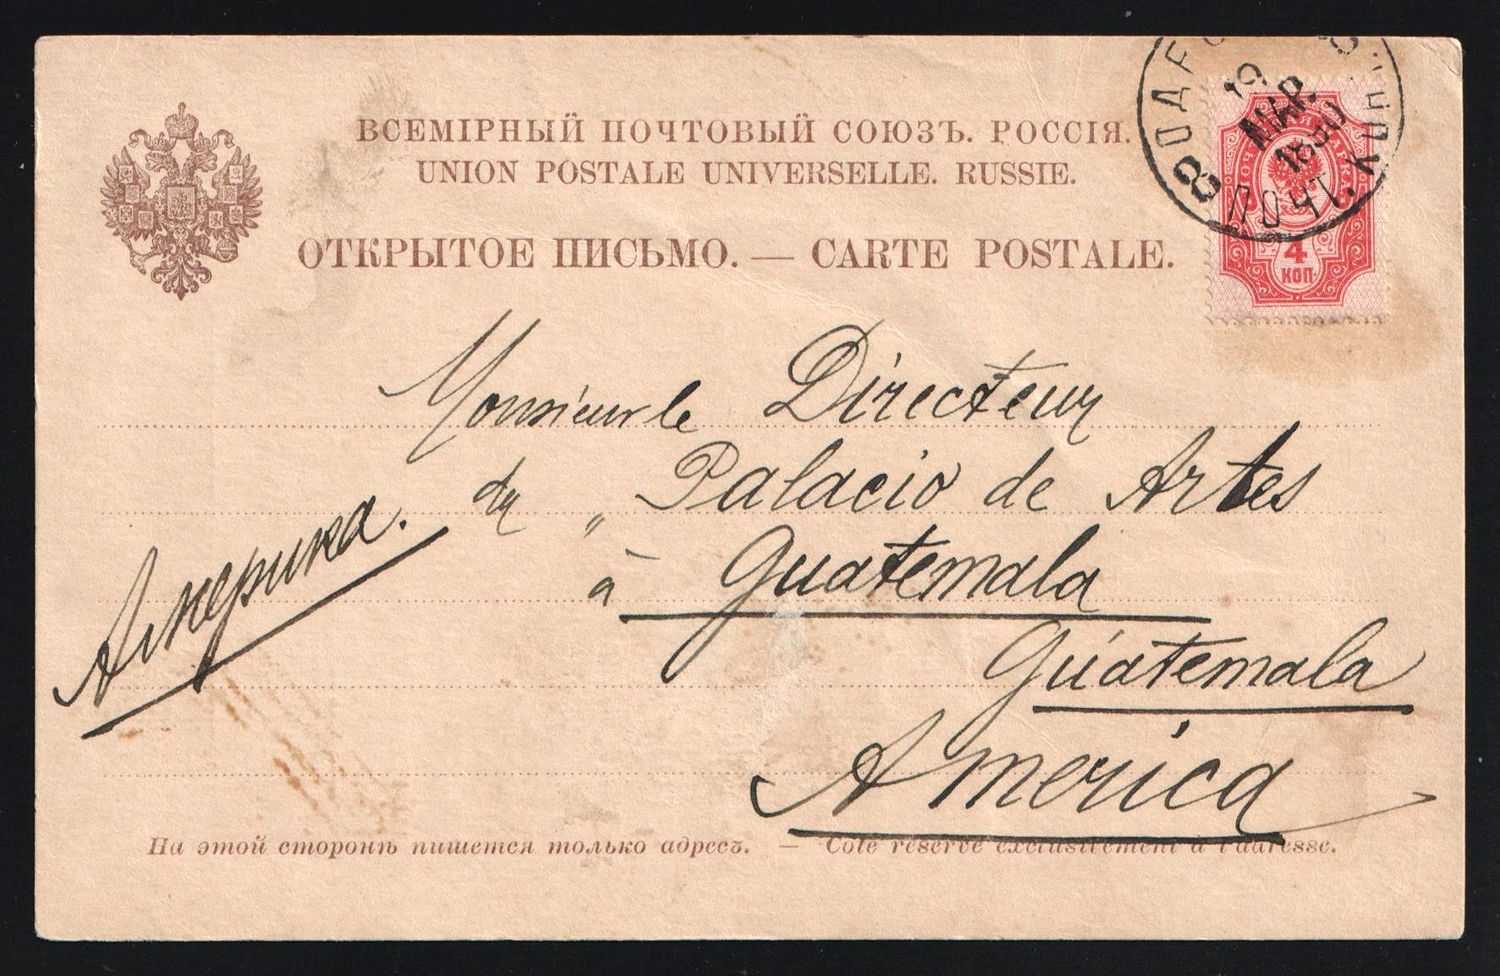 ВСЕМІРНЫЙ ПОЧТОВЫЙ СОЮЗЪ. РОССІЯ.
UNION POSTALE UNIVERSELLE. RUSSIE.
ОТКРЫТОЕ ПИСЬМО. — CARTE POSTALE.
19
МАР.
ПОЧТ.
4
КОП
Monsieur le Directeur
du „ Palacio de Artes
à Guatemala
Америка.
Guatemala
America
На этой сторонѣ пишется только адресъ. — Côté réservé exclusivement à l'adresse.